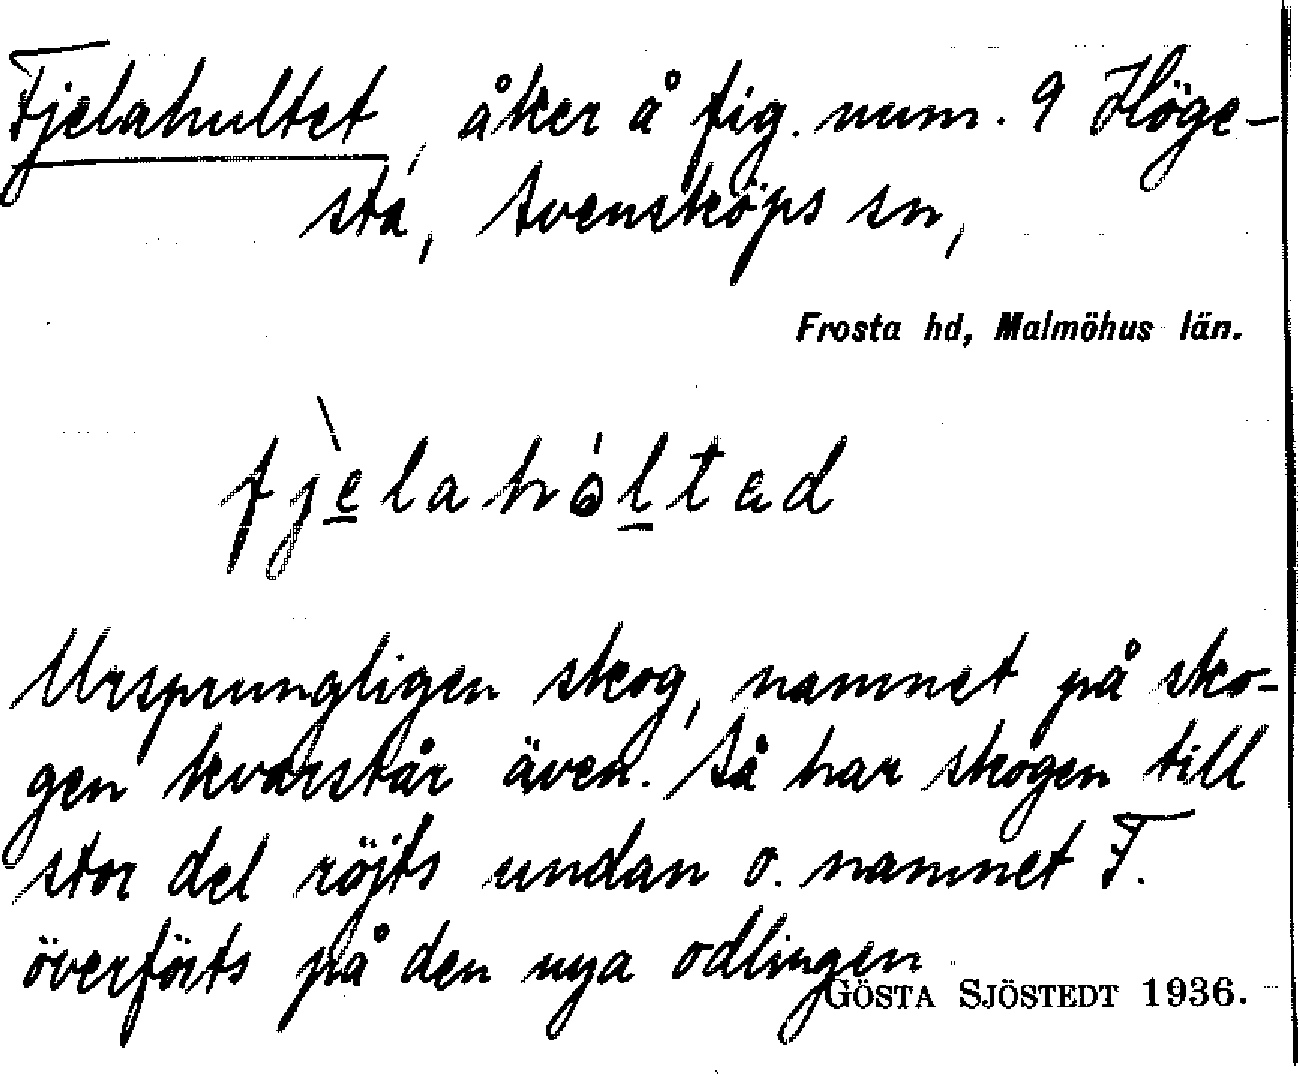 Fjelahultet, åker å fig. num. 9 Höge-
sta, Svensköps sn,
Frosta hd, Malmöhus län.
fjèlahóltad
Ursprungligen skog, namnet på sko-
gen kvarstår även. Så har skogen till
stor del röjts undan o. namnet F.
överförts på den nya odlingen
GÖSTA SJÖSTEDT 1936.